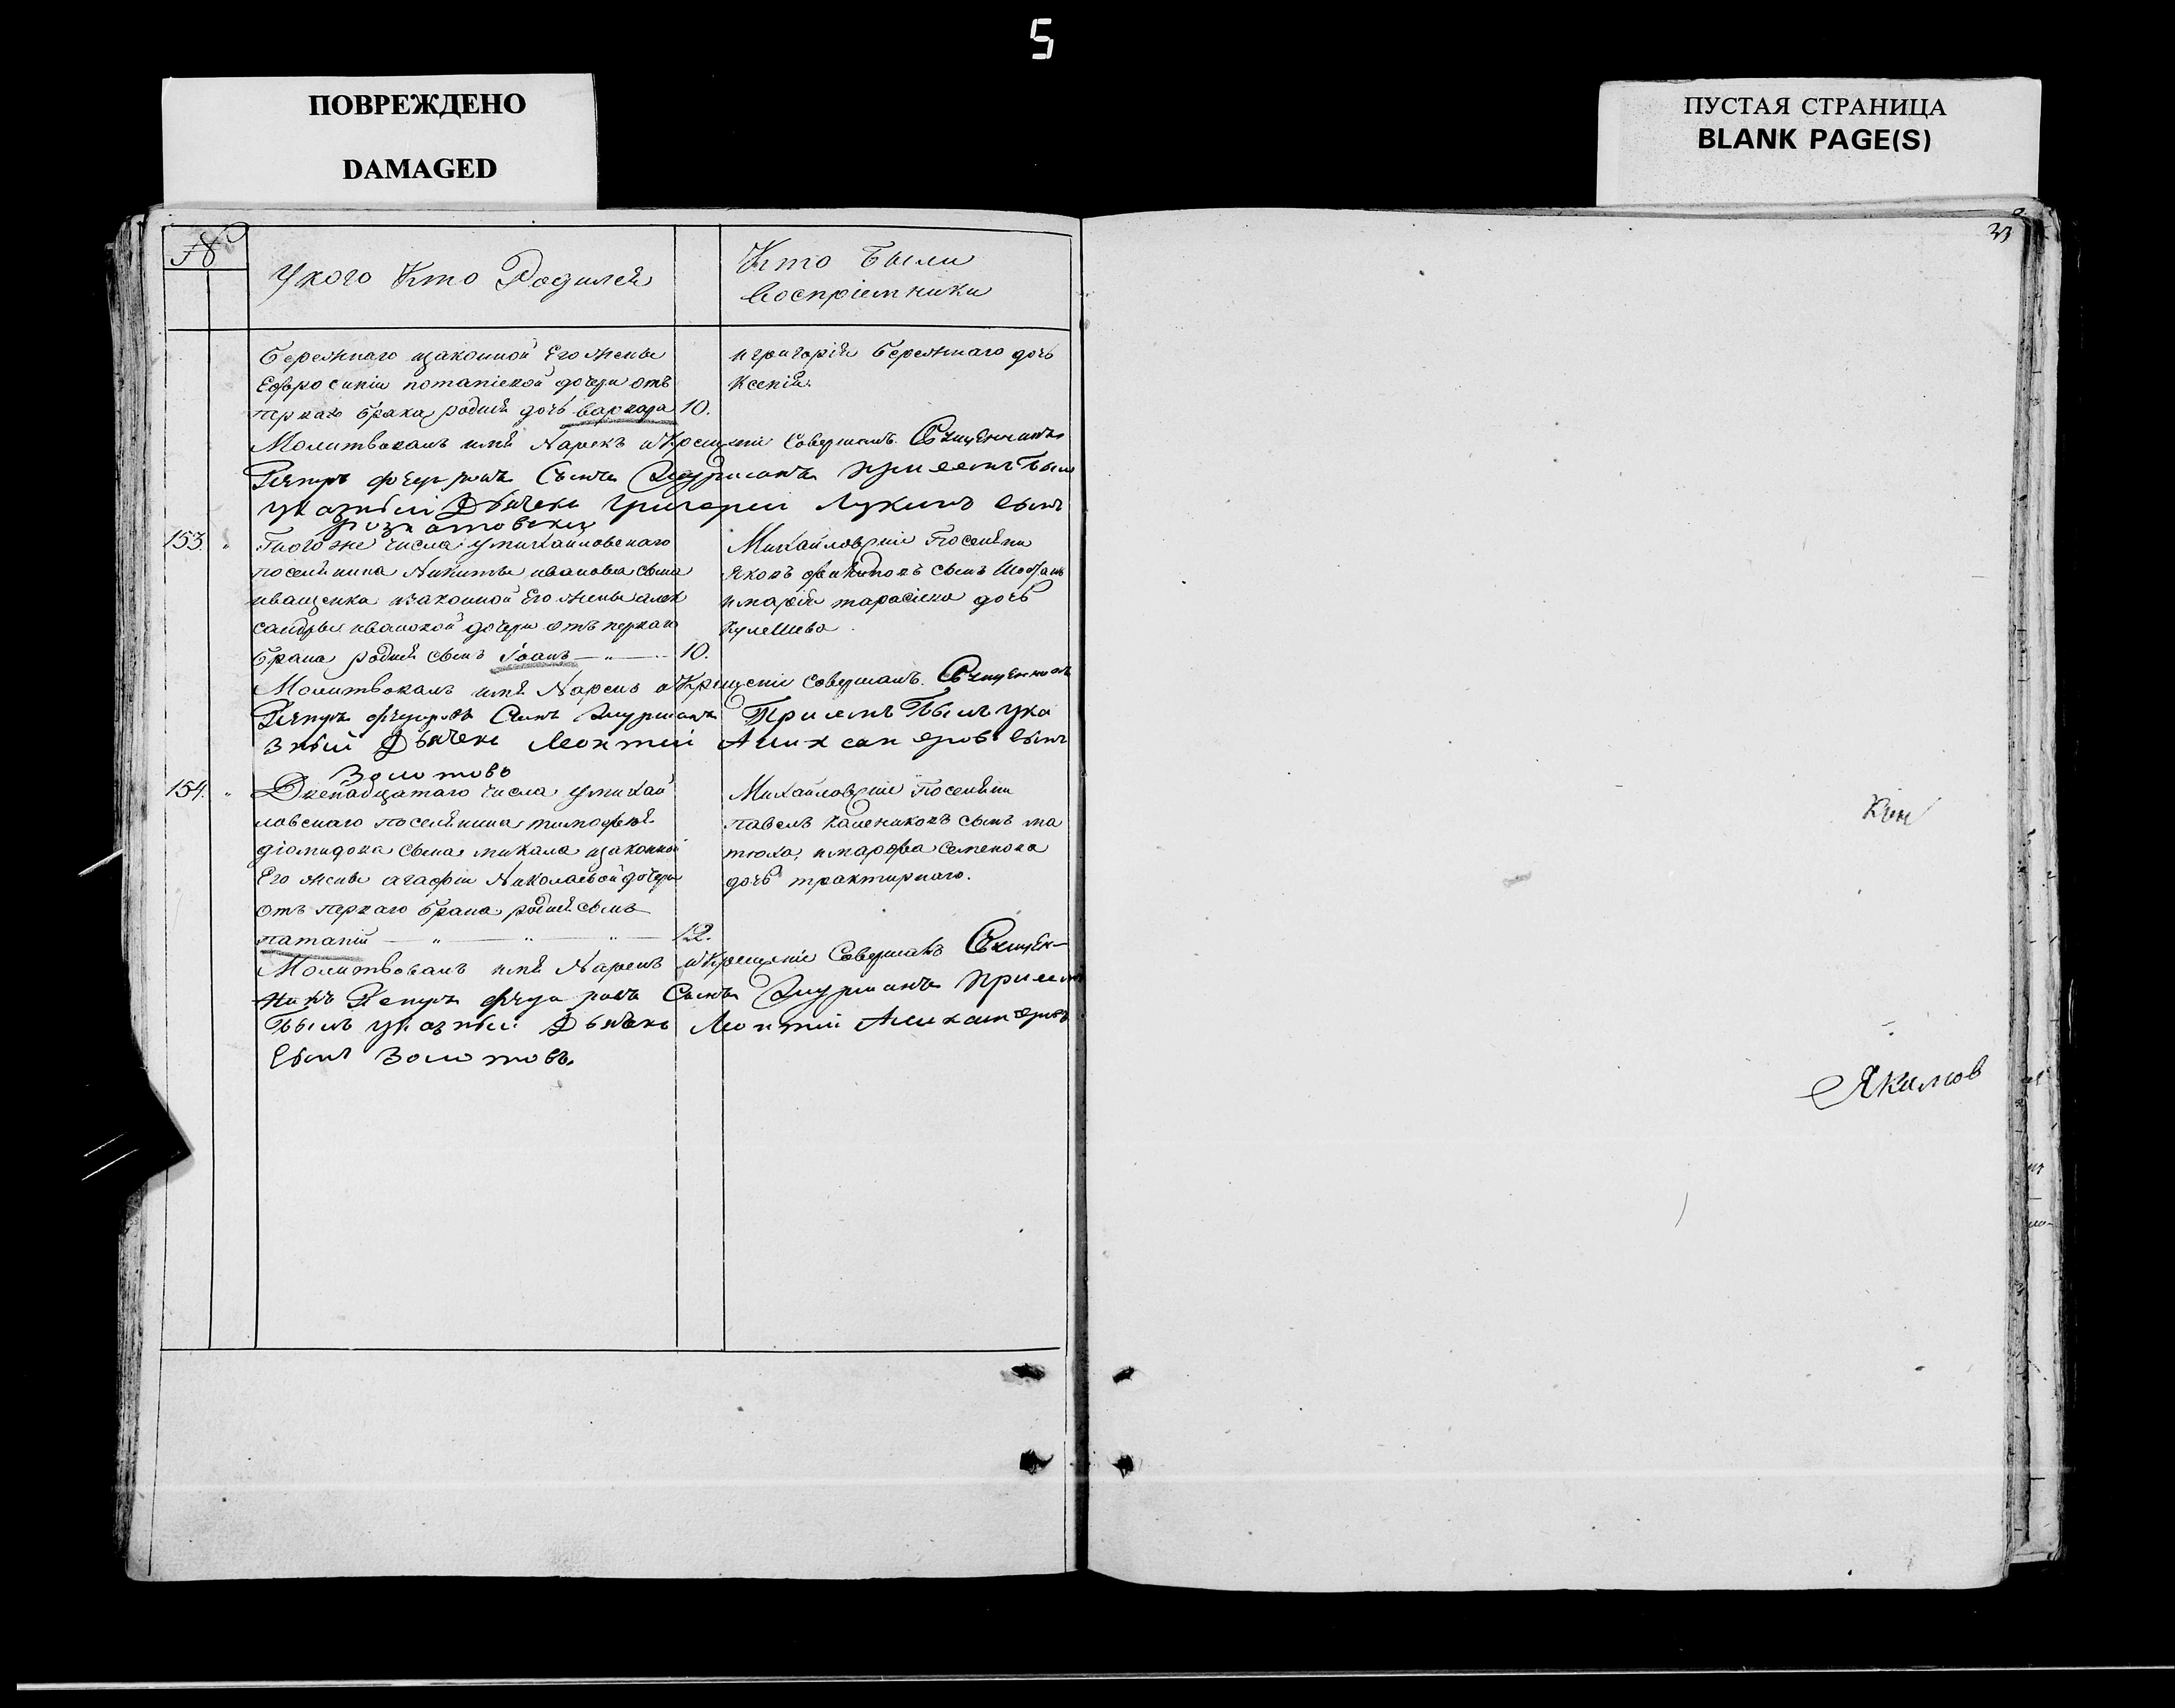 5
ПОВРЕЖДЕНО
DAMAGED
ПУСТАЯ СТРАНИЦА
BLANK PAGE(S)
№
У кого Кто Родился
Кто были
воспріемники
Бережнаго изаконной Его жены
Ефросиніи потапіевой дочери отъ
перваго брака родися дочь варвара 10.
игригорія бережнаго дочь
ксенія.
Молитвовалъ имя Нарекъ иКрещеніе совершалъ Священникъ
Петръ федоровъ Сынъ при семъ былъ
указный Дьячекъ григорій Лукинъ сынъ
153. Того же числа умихайловскаго
поселянина Никиты иванова сына
иващенка изаконной Его жены алек
сандры ивановой дочери отъ перваго
брака родися сынъ Іоанъ 10.
Михайловскіе Поселяни
Яковъ сынъ
имарія тарасіева дочь
кулешева
Молитвовалъ имя Нарекъ иКрещеніе совершалъ Священникъ
Петръ федоровъ Сынъ При семъ былъ ука
зный Дьячекъ Леонтій Аликсандровъ сынъ
Золотовъ
154. Двенадцатаго числа умихай
ловскаго поселянина тимофея
діомидова сына михала изаконной
Его жены агафіи Николаевой дочери
отъ перваго брака родися сынъ
патапій 12.
Михайловскіе Поселяни
павелъ калениковъ сынъ ма
тюха, имарфа семенова
дочь трактирнаго.
Молитвовалъ имя Нарекъ иКрещеніе Совершалъ Священ-
никъ Петръ федоровъ Сынъ при семъ
былъ указный Дьячекъ Леонтій Аликсандровъ
сынъ Золотовъ
Якимов